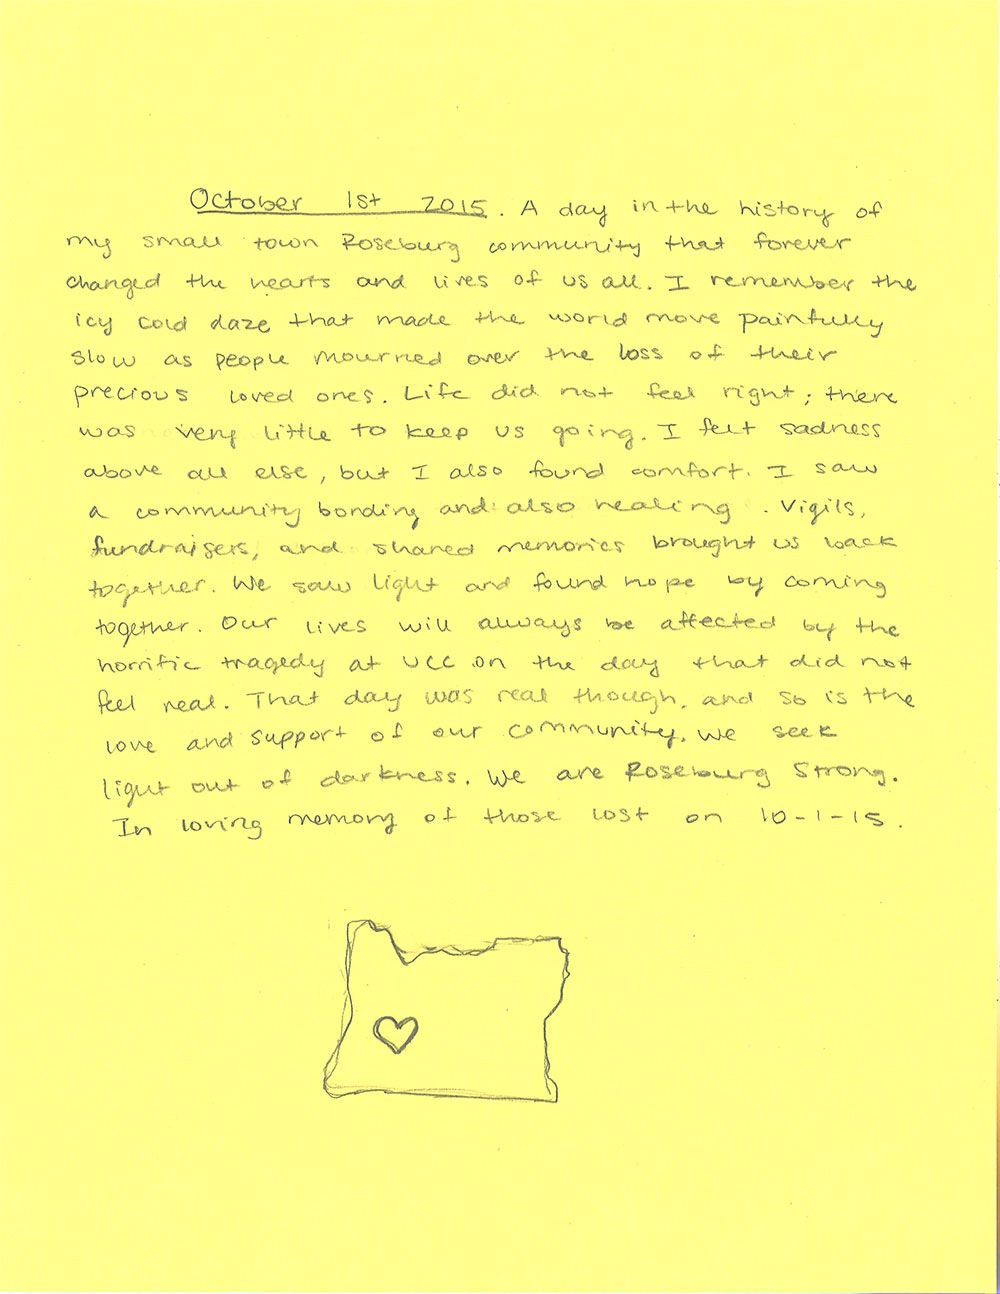 October 1st 2015. A day in the history of
my small town Roseburg community that forever
changed the hearts and lives of us all. I remember the
icy cold daze that made the world move painfully
slow as people mourned over the loss of their
precious loved ones. Life did not feel right; there
was very little to keep us going. I felt sadness
above all else, but I also found comfort. I saw
a community bonding and also healing. Vigils,
fundraisers, and shared memories brought us back
together. We saw light and found hope by coming
together. Our lives will always be affected by the
horrific tragedy at UCC on the day that did not
feel real. That day was real though, and so is the
love and support of our community. We seek
light out of darkness. We are Roseburg Strong.
In loving memory of those lost on 10-1-15.